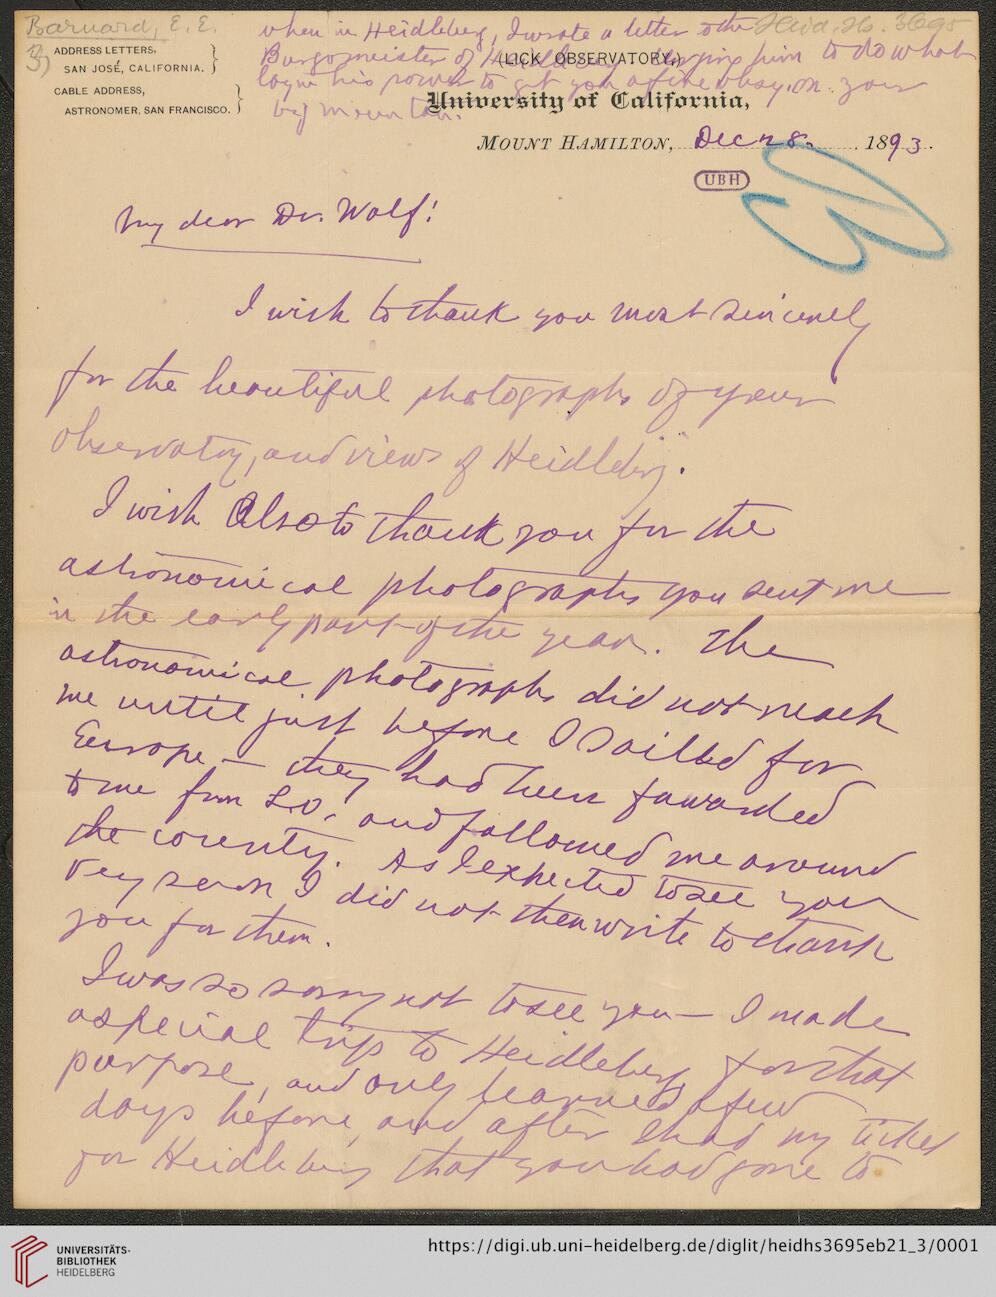 Barnard, E. E.
Heid. Hs. 3695
3)
when in Heidleberg, I wrote a letter to the
Burgomeister of Heidleberg urging him to do what
lay in his power to get you a fine obsy. on your
big mountain.
ADDRESS LETTERS,
SAN JOSÉ, CALIFORNIA.
CABLE ADDRESS,
ASTRONOMER, SAN FRANCISCO.
(LICK OBSERVATORY,)
University of California,
MOUNT HAMILTON, Dec 28. 1893.
UBH
My dear Dr. Wolf!
I wish to thank you most sincerely
for the beautiful photographs of your
observatory, and views of Heidleberg.
I wish also to thank you for the
astronomical photographs you sent me
in the early part of the year. The
astronomical photographs did not reach
me until just before I sailed for
Europe — they had been fawarded
to me from L.O. and followed me around
the country. As I expected to see you
very soon I did not then write to thank
you for them.
I was so sorry not to see you — I made
a special trip to Heidleberg for that
purpose, and only learned a few
days before, and after I had my ticket
for Heidleberg that you had gone to
UNIVERSITÄTS-
BIBLIOTHEK
HEIDELBERG
https://digi.ub.uni-heidelberg.de/diglit/heidhs3695eb21_3/0001